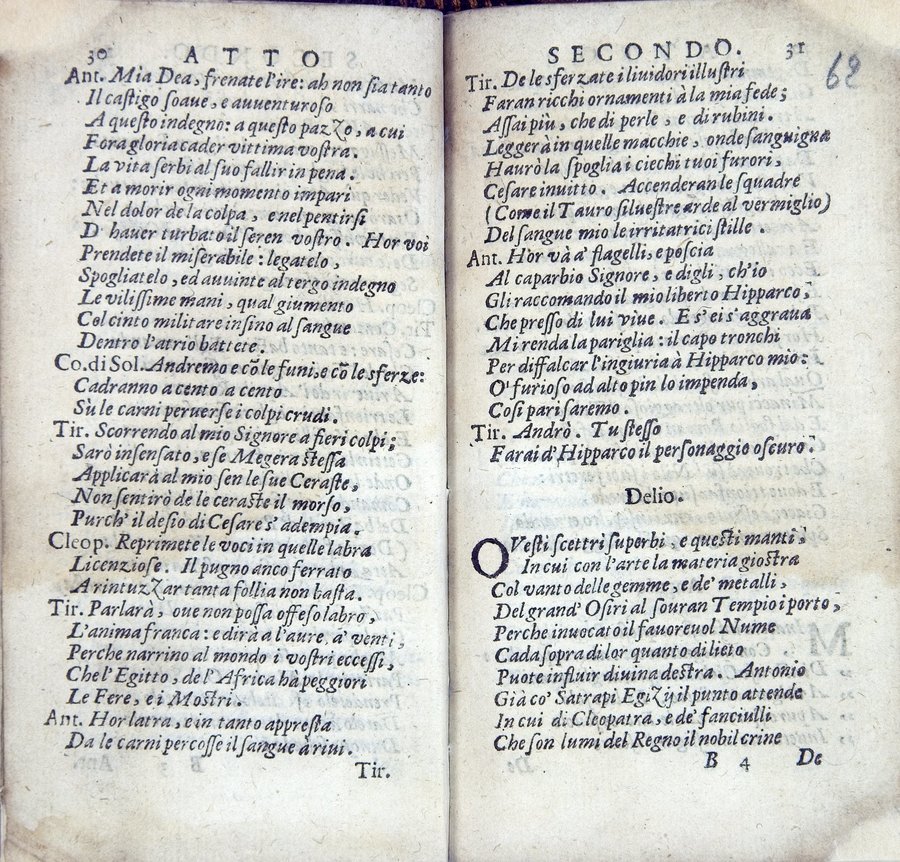 30 ATTO
Ant. Mia Dea, frenate l'ire: ah non sia tanto
Il castigo soaue, e auuenturoso
A questo indegno: a questo pazzo, a cui
Fora gloria cader vittima vostra.
La vita serbi al suo fallir in pena.
Et a morir ogni momento impari
Nel dolor de la colpa, e nel pentirsi
D' hauer turbato il seren vostro. Hor voi
Prendete il miserabile: legatelo
Spogliatelo, ed auuinte al tergo indegno
Le vilissime mani, qual giumento
Col cinto militare insino al sangue
Dentro l'atrio battete.
Co.di Sol. Andremo e cō le funi, e cō le sferze:
Cadranno a cento a cento
Sù le carni peruerse i colpi crudi.
Tir. Scorrendo al mio Signore a fieri colpi;
Sarò insensato, e se Megera stessa
Applicarà al mio sen le sue Ceraste,
Non sentirò de le ceraste il morso,
Purch' il desio di Cesare s' adempia.
Cleop. Reprimete le voci in quelle labra
Licenziose. Il pugno anco ferrato
A rintuzzar tanta follia non basta.
Tir. Parlarà, oue non possa offeso labro,
L'anima franca: e dirà a l'aure, a' venti,
Perche narrino al mondo i vostri eccessi,
Che l'Egitto, de l'Africa hà peggiori
Le Fere, e i Mostri.
Ant. Hor latra, e in tanto appresta
Da le carni percosse il sangue à riui.
Tir.
SECONDO. 31
68
Tir. De le sferzate i liuidori illustri
Faran ricchi ornamenti à la mia fede;
Assai più, che di perle, e di rubini.
Leggerà in quelle macchie, onde sanguigna
Haurò la spoglia i ciechi tuoi furori,
Cesare inuitto. Accenderan le squadre
(Come il Tauro siluestre arde al vermiglio)
Del sangue mio le irritatrici stille.
Ant. Hor và a' flagelli, e poscia
Al caparbio Signore, e digli, ch'io
Gli raccomando il mio liberto Hipparco,
Che presso di lui viue. E s'ei s'aggraua
Mi renda la pariglia: il capo tronchi
Per diffalcar l'ingiuria à Hipparco mio:
O' furioso ad alto pin lo impenda,
Così pari saremo.
Tir. Andrò. Tu stesso
Farai d' Hipparco il personaggio oscuro.
Delio.
QVesti scettri superbi e questi manti,
In cui con l'arte la materia giostra
Col vanto delle gemme, e de' metalli,
Del grand' Osiri al souran Tempio i porto,
Perche inuocato il fauoreuol Nume
Cada sopra di lor quanto di lieto
Puote influir diuina destra. Antonio
Già co' Satrapi Egizij il punto attende
In cui di Cleopatra, e de' fanciulli
Che son lumi del Regno il nobil crine
B 4 De